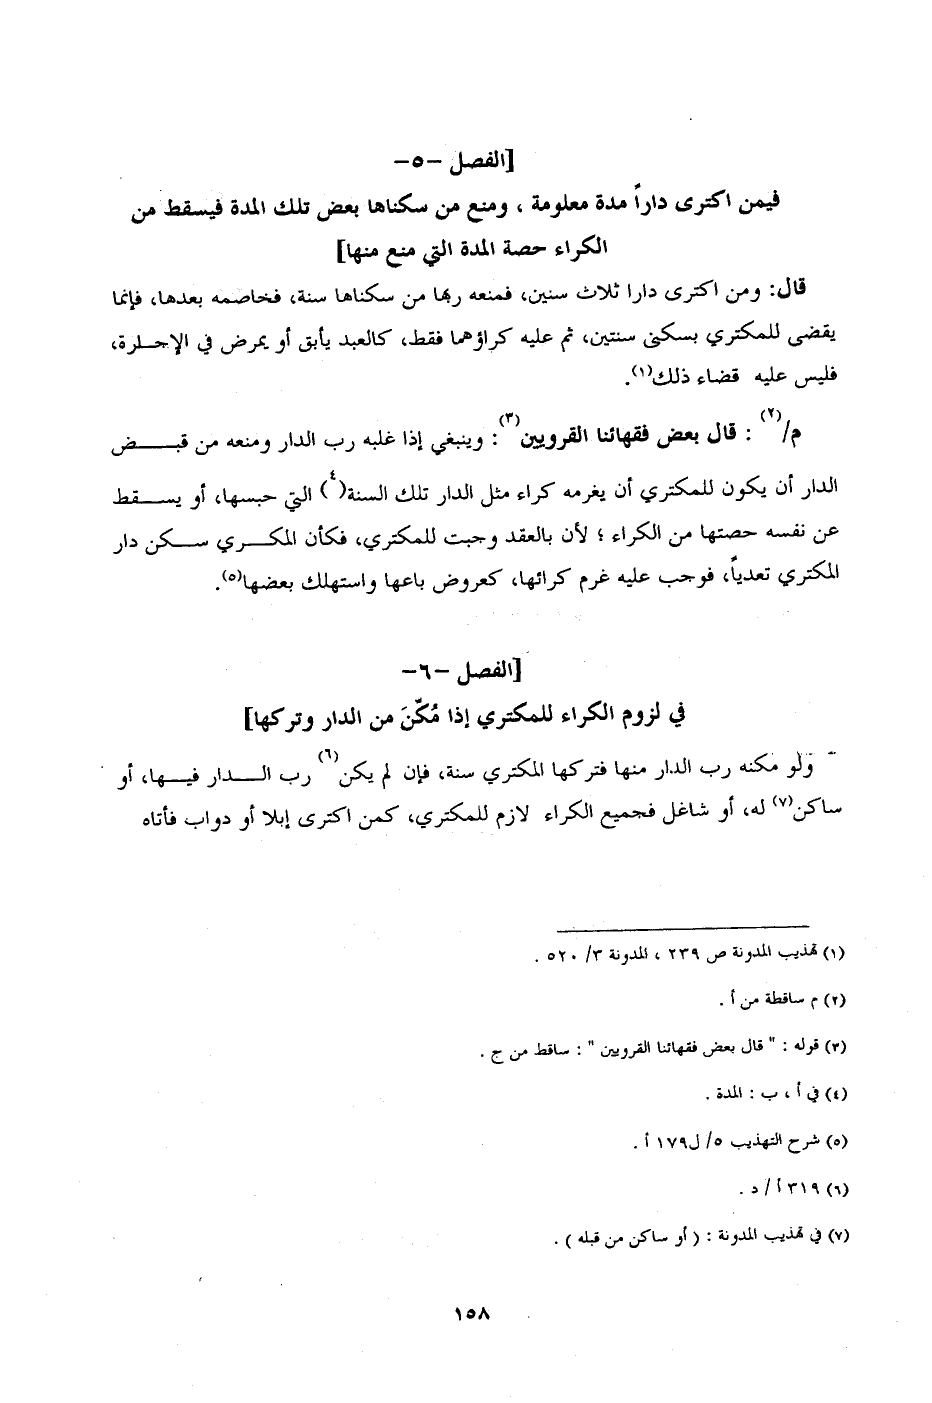 [الفصل -٥-
فيمن اكترى داراً مدة معلومة ، ومنع من سكناها بعض تلك المدة فيسقط من
الكراء حصة المدة التي منع منها]
قال: ومن اكترى دارا ثلاث سنين، فمنعه ربها من سكناها سنة، فخاصمه بعدها، فإنما
يقضى للمكتري بسكنى سنتين، ثم عليه كراؤهما فقط، كالعبد يأبق أو يمرض في الإجـارة،
فليس عليه قضاء ذلك(١).
م/(٢) : قال بعض فقهائنا القرويين(٣): وينبغي إذا غلبه رب الدار ومنعه من قبـــض
الدار أن يكون للمكتري أن يغرمه كراء مثل الدار تلك السنة(٤) التي حبسها، أو يســقط
عن نفسه حصتها من الكراء ؛ لأن بالعقد وجبت للمكتري، فكأن المكــري ســكن دار
المكتري تعدياً، فوجب عليه غرم كرائها، كعروض باعها واستهلك بعضها(٥).
[الفصل -٦-
في لزوم الكراء للمكتري إذا مُكّنَ من الدار وتركها]
وَلو مكنه رب الدار منها فتركها المكتري سنة، فإن لم يكن(٦) رب الــدار فيــها، أو
ساكن(٧) له، أو شاغل فجميع الكراء لازم للمكتري، كمن اكترى إبلا أو دواب فأتاه
(١) تهذيب المدونة ص ٢٣٩ ، المدونة ٣/ ٥٢٠ .
(٢) م ساقطة من أ .
(٣) قوله : " قال بعض فقهائنا القرويين " : ساقط من ج .
(٤) في أ ، ب : المدة .
(٥) شرح التهذيب ٥/ ل١٧٩ أ .
(٦) ٣١٩ أ / د .
(٧) في تهذيب المدونة : ( أو ساكن من قبله ) .
١٥٨